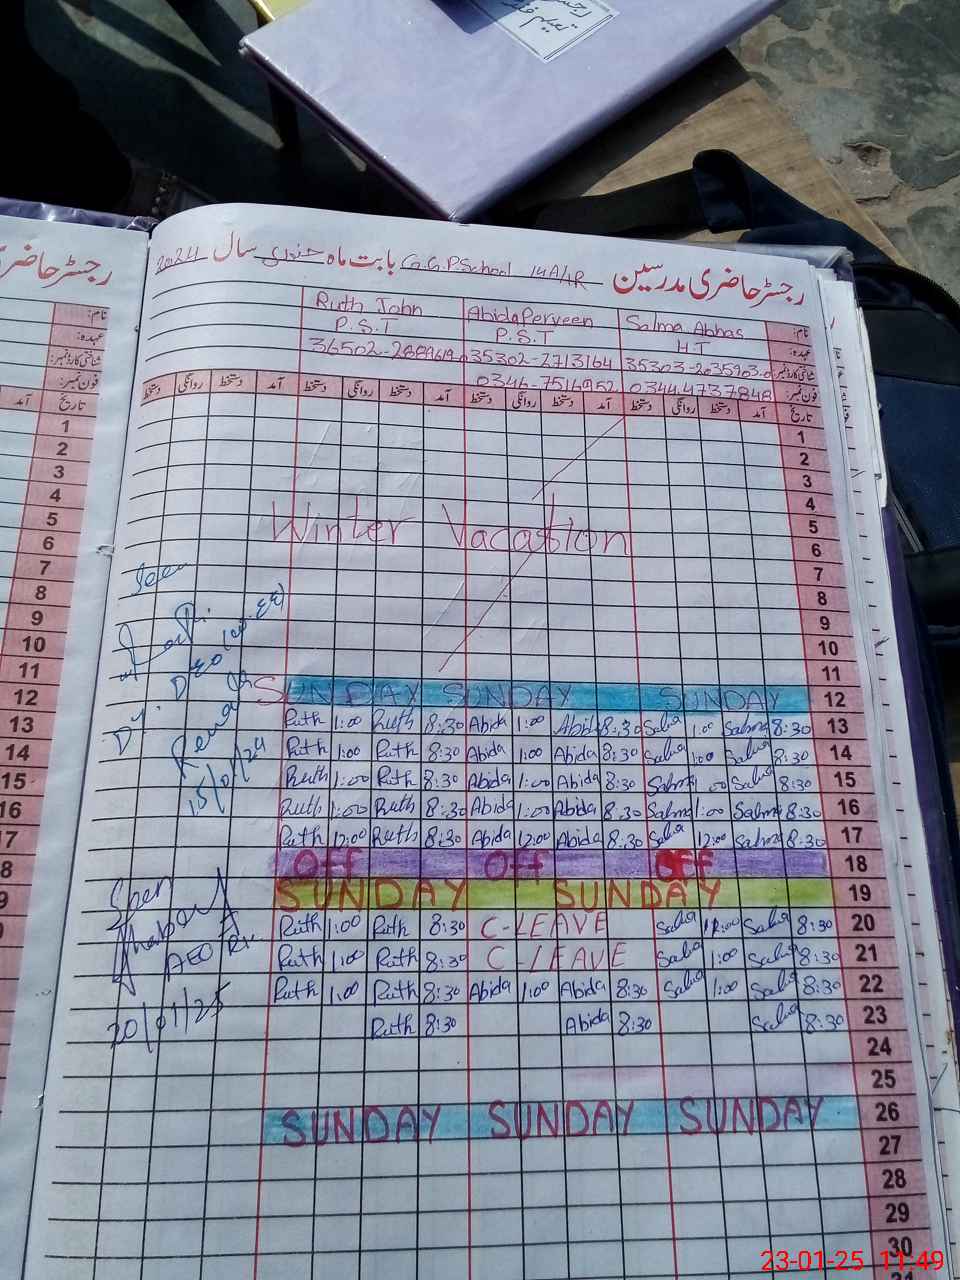 رجسٹر حاضری مدرسین G.G.P.School 14A/4R بابت ماہ جنوری سال 2024
نام: Salma Abbas Abida Perveen Ruth John
عہدہ: H.T P.S.T P.S.T
شناختی کارڈ نمبر: 35303-2635903-0 35302-2713164
فون نمبر: 0344-4737848 0346-7516952
تاریخ آمد دستخط روانگی دستخط آمد دستخط روانگی دستخط آمد دستخط روانگی دستخط آمد دستخط روانگی دستخط
1
2
3
4
Winter Vacation 5
6
7
Seen 8
9
10
11
SUNDAY SUNDAY SUNDAY 12
Ruth 1:00 Ruth 8:30 Abida 1:00 Abida 8:30 Salma 1:00 Salma 8:30 13
Ruth 1:00 Ruth 8:30 Abida 1:00 Abida 8:30 Salma 1:00 Salma 8:30 14
Ruth 1:00 Ruth 8:30 Abida 1:00 Abida 8:30 Salma 1:00 Salma 8:30 15
Ruth 1:00 Ruth 8:30 Abida 1:00 Abida 8:30 Salma 1:00 Salma 8:30 16
Ruth 12:00 Ruth 8:30 Abida 12:00 Abida 8:30 Salma 12:00 Salma 8:30 17
Off Off Off 18
SUNDAY SUNDAY 19
Ruth 1:00 Ruth 8:30 C-LEAVE Salma 1:00 Salma 8:30 20
Ruth 1:00 Ruth 8:30 C-LEAVE Salma 1:00 Salma 8:30 21
Ruth 1:00 Ruth 8:30 Abida 1:00 Abida 8:30 Salma 1:00 Salma 8:30 22
Ruth 8:30 Abida 8:30 Salma 8:30 23
24
25
SUNDAY SUNDAY SUNDAY 26
27
28
29
30
Dy. DEO (W-EE)
Renala
15/01/24
Seen
AEO
20/01/25
رجسٹر حاضری
آمد تاریخ
1
2
3
4
5
6
7
8
9
10
11
12
13
14
15
16
17
8
9
23-01-25 11:49